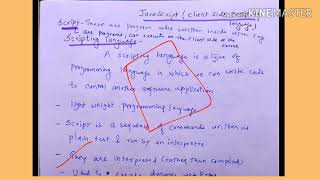 JavaScript (client side
language)
Script - These are program codes written inside HTML tag
& are programs, can execute on the client side or the
server
Scripting language
A scripting language is a type of
programming language in which we can write code
to control another software application
- light weight programming language
- Script is a sequence of commands written as
plain text & run by an interpreter
- They are interpreted (rather than compiled)
- Used to create dynamic web
KINEMASTER